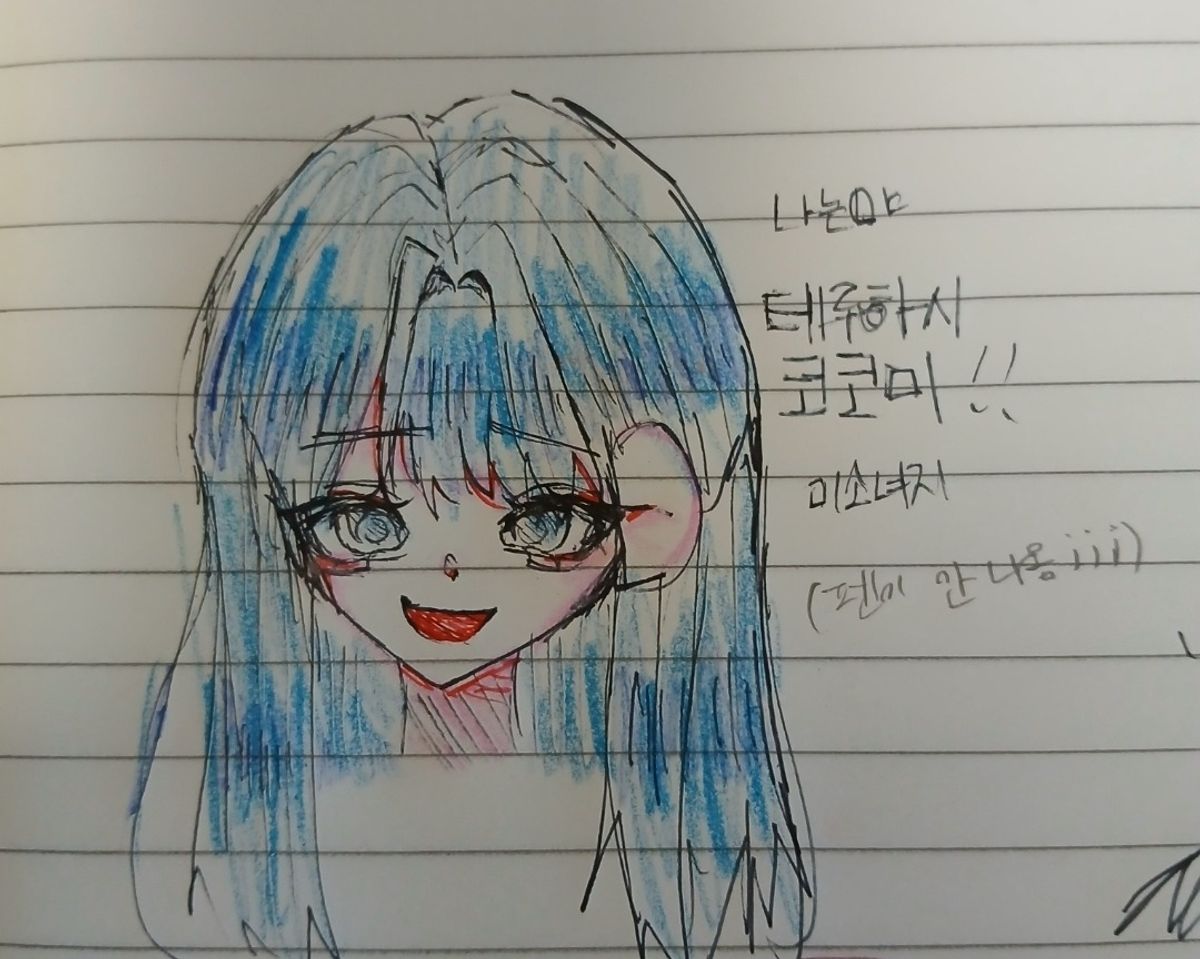 나는야
테주하시
코코미!!
미소녀지
(펜이 안 나옹 ;;;)